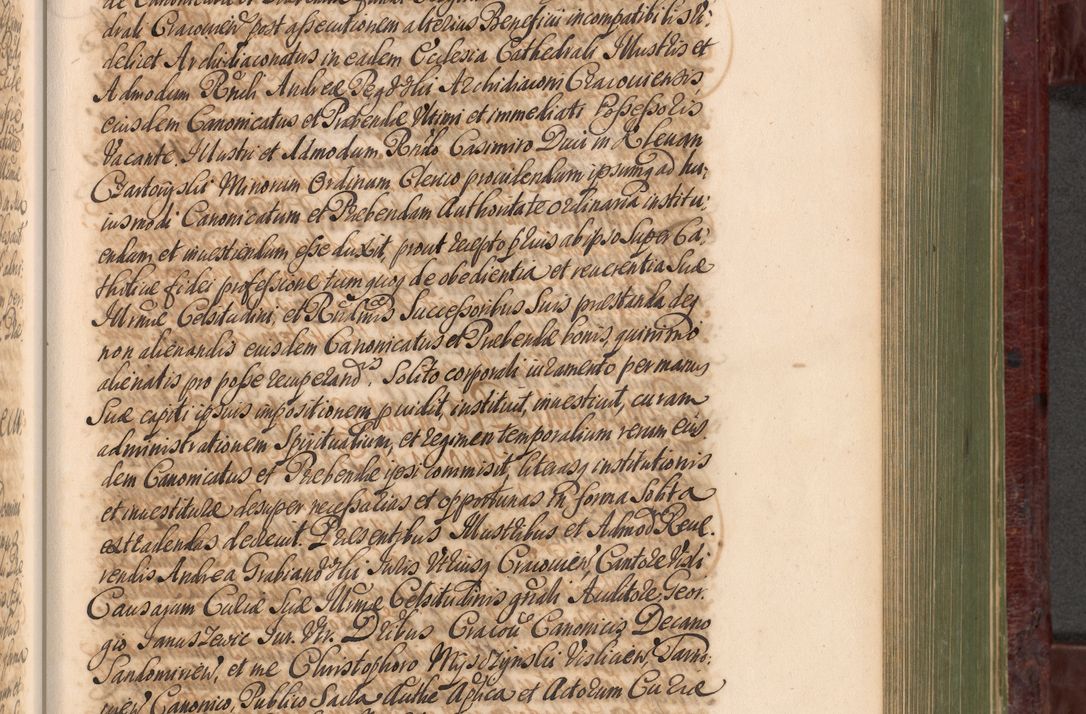 drali Cracovien̄ post assecutionem alterius Beneficii incompatibilis vi:
delicet Archidiaconatus in eadem Ecclesia Cathedrali Illustris et
Admodum Rn̄di Andreæ Pegowski Archidiaconi Cracoviensis
eiusdem Canonicatus et Præbendæ Ultimi et immediati Possessoris
Vacante. Illustri et Admodum Rn̄do Casimiro Duci in Klewan
Czartoryski Minorum Ordinum Clerico providendum ipsumq ad hu:
iusmodi Canonicatum et Præbendam Authoritate ordinaria institu:
endum et investiendum esse duxit, prout recepto prius ab ipso super Ca:
tholicæ fidei professione tum quoq de obedientia et reverentia Suæ
Illrmæ Celsitudini, et Rn̄dmis Successoribus Suis præstanda deq
non alienandis eiusdem Canonicatus et Præbendæ bonis, quinimo
alienatis pro posse recuperandis. Solito corporali iuramento per manus
Suæ capiti ipsius impositionem p̄vidit, instituit, investivit, curam
administrationem Spiritualium, et regimen temporalium rerum eius:
dem Canonicatus et Præbendæ ipsi commisit, literasq institutionis
et investituræ desuper necessarias et opportunas in forma Solita
extradendas decrevit. Præsentibus Illustribus et Admod Reve:
rendis Andrea Grabianowski Iuris Utriusq Cracovien̄, Cantore Visli
Causarum Curiæ Suæ Illrmæ Celsitudinis gn̄ali Auditore, Geor:
gio Januszewic Iur. Utr. Dribus Cracov Canonicis Decano
Sandomirien̄, et me Christophoro Mysczynski Vislicien̄, Tarno:
vien̄ Canonico, Publico Sacra Authē Aplica et Actorum Curiæ